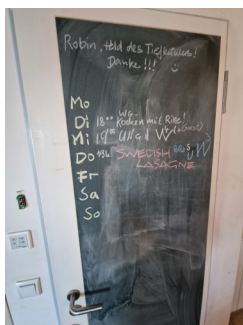 Robin, Held des Tiefkühlers!
Danke!!!
Mo
Di 18°° WG-Kochen mit Rike!
Mi 19°°
Do SWEDISH
LASAGNE
Fr
Sa
So